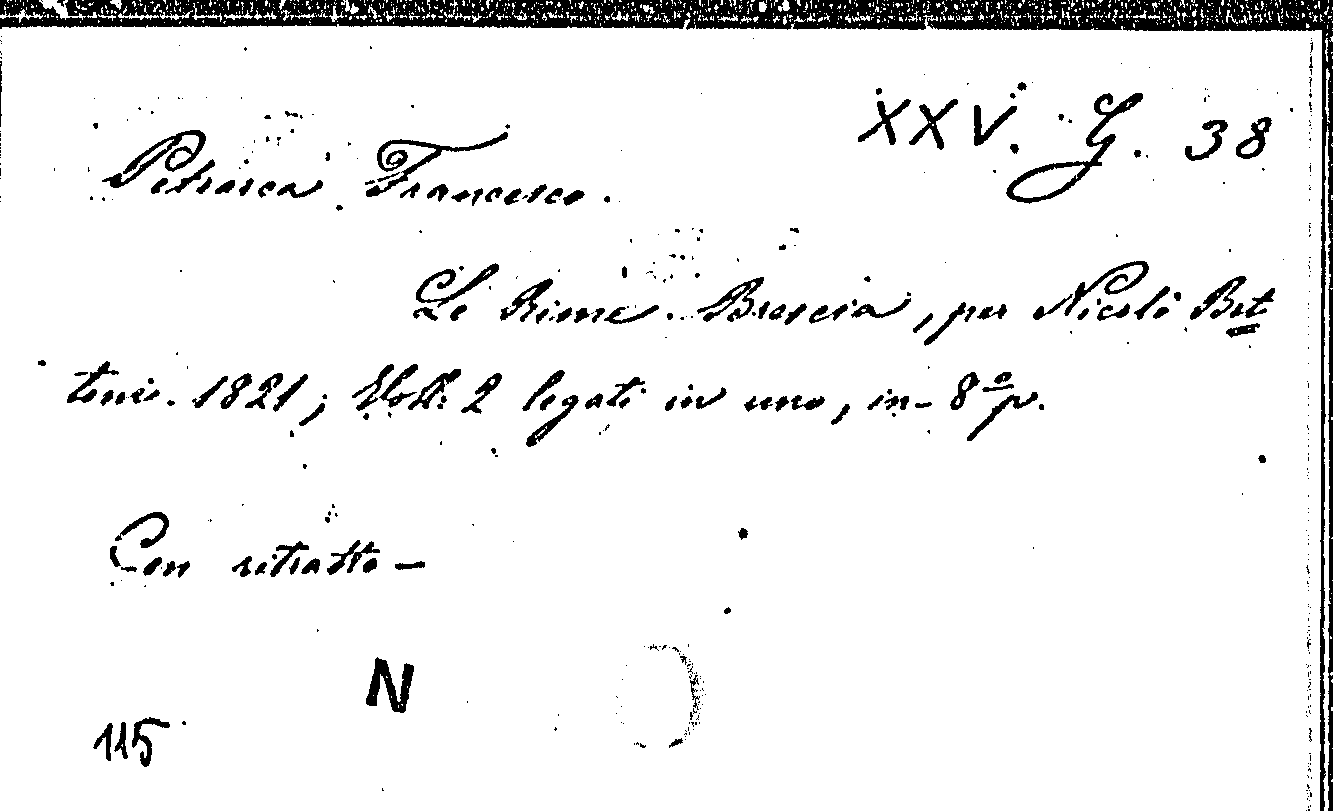 XXV. G. 38
Petrarca Francesco.
Le Rime. Brescia, per Nicolò Bet=
toni. 1821; Voll. 2 legati in uno, in-8º p.
Con ritratto -
N
115